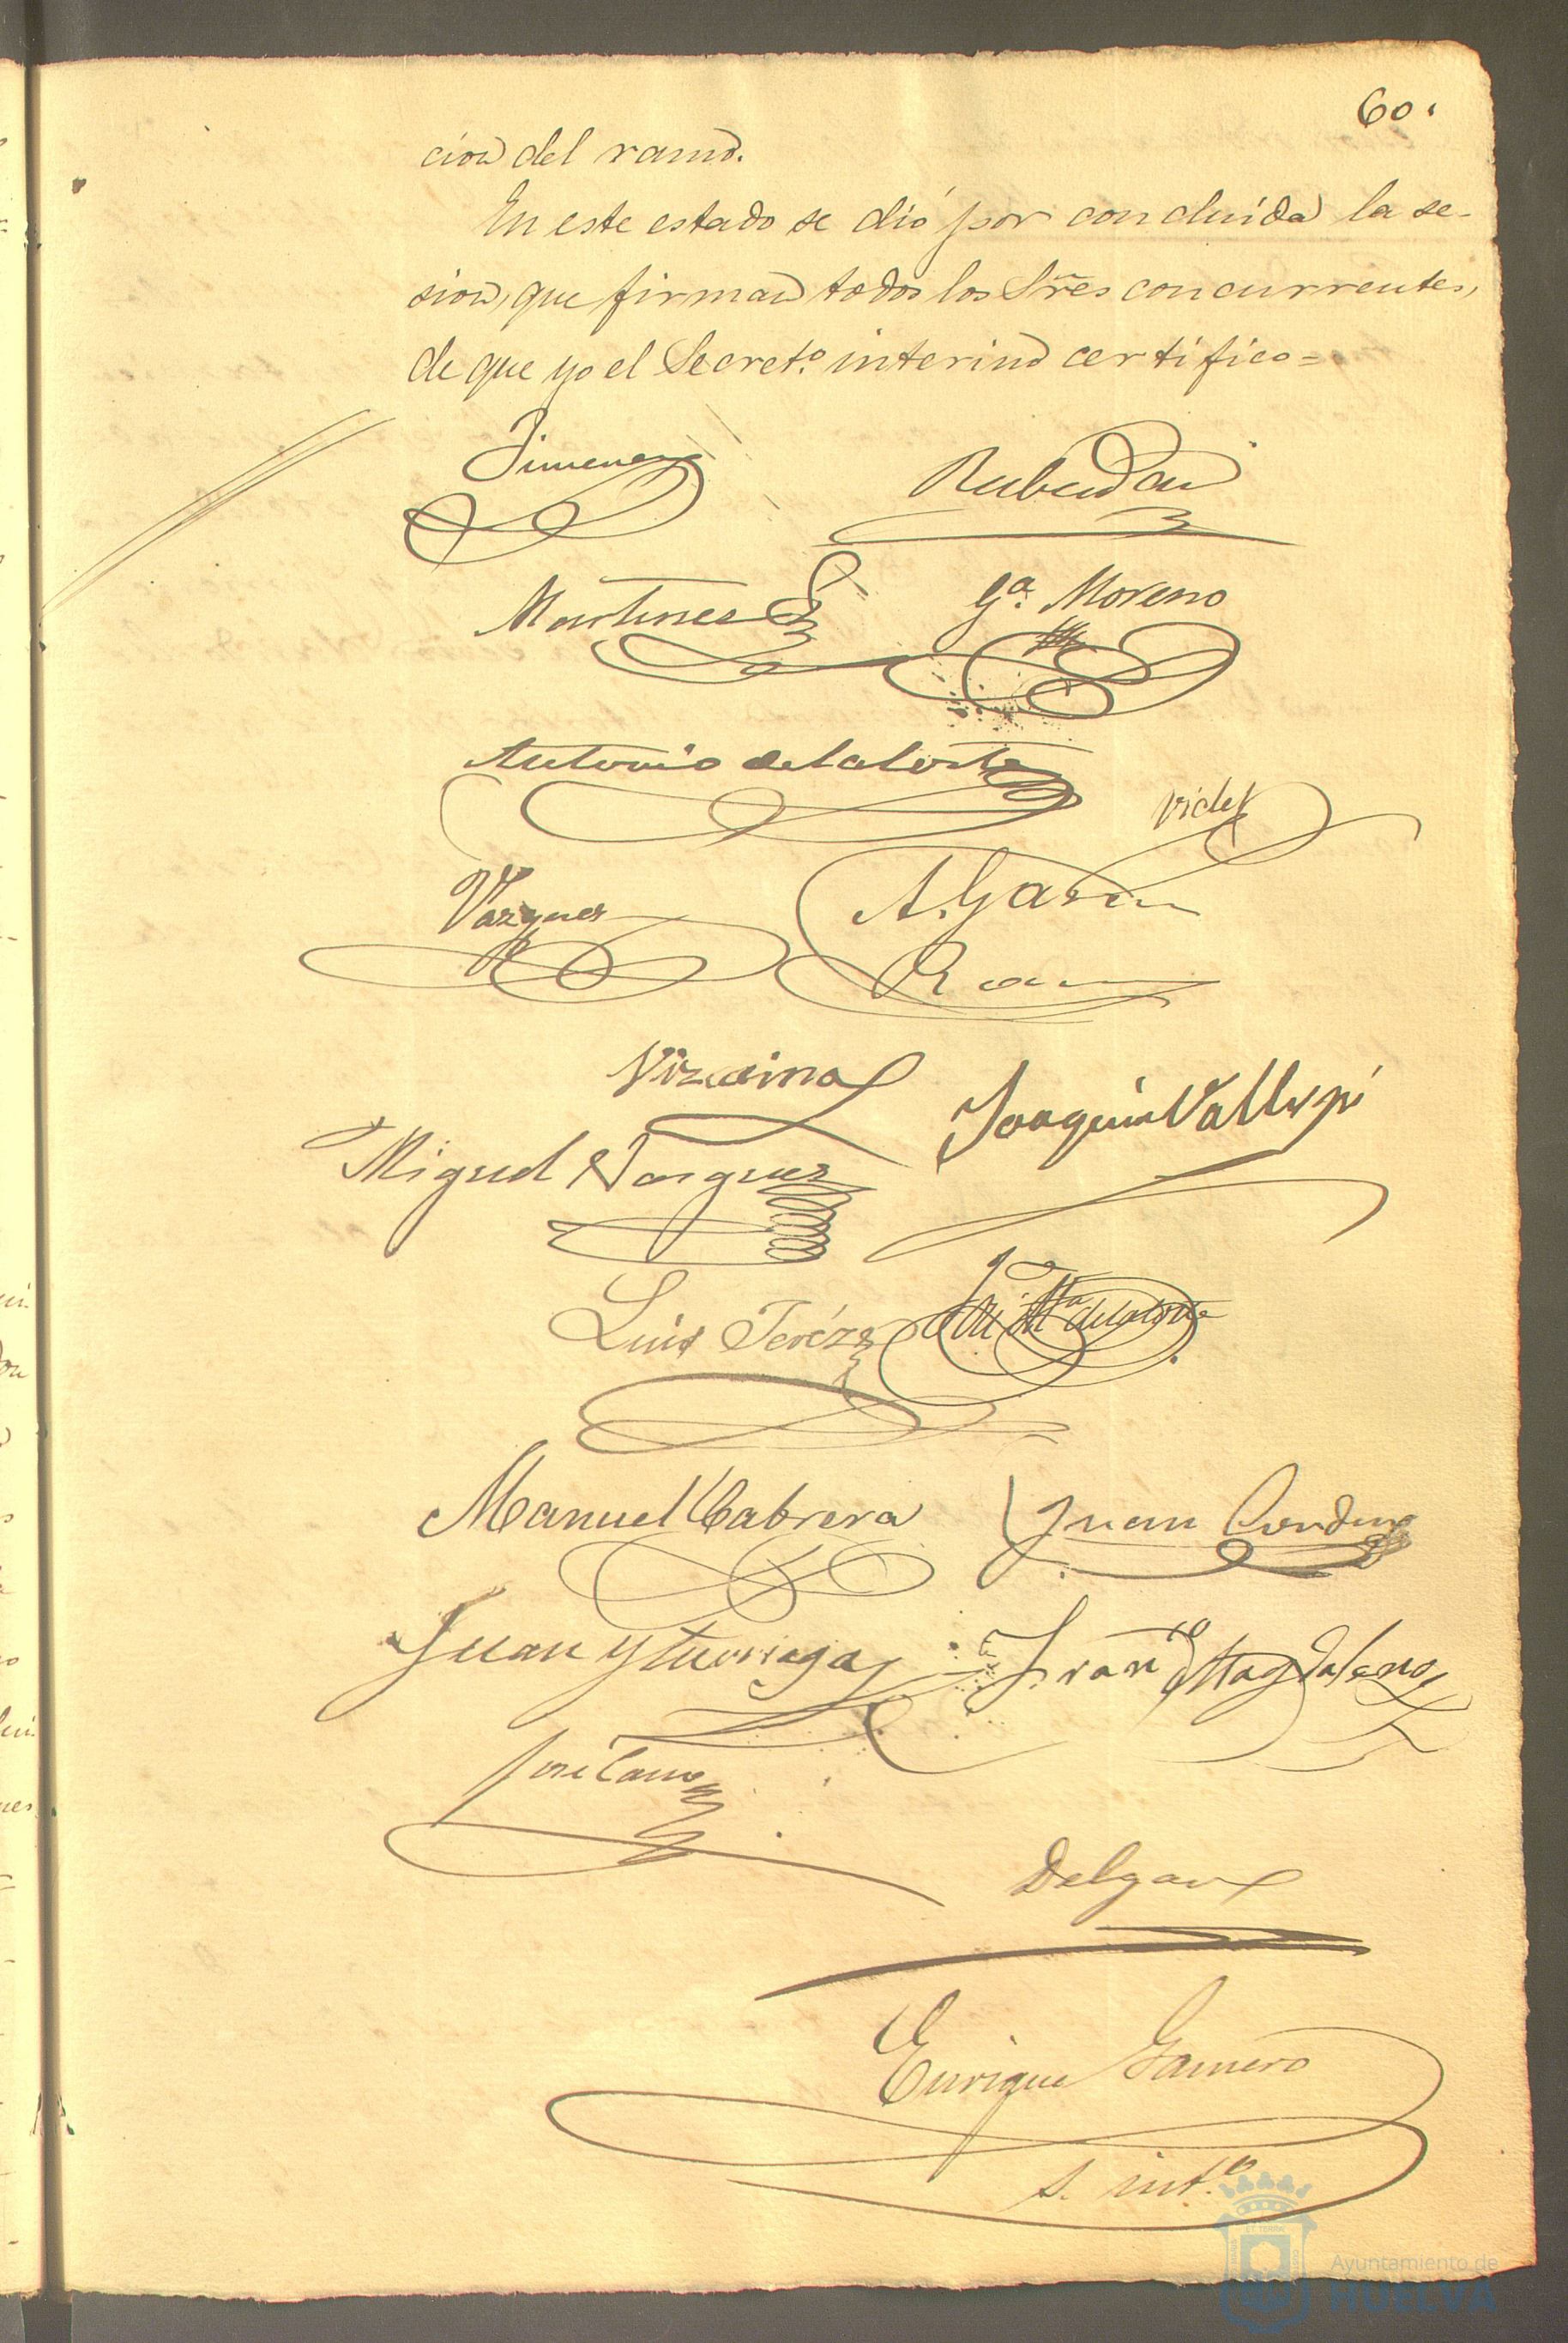 60.
cion del ramo.
En este estado se dió por concluida la se-
sion, que firman todos los Sres concurrentes,
de que yo el Secret.o interino certifico=
Jimenez
Martinez
G.a Moreno
Antonio de la Corte
Videz
Vazquez
A. Garcia
Vizcaino
Joaquin Vallespi
Miguel Vazquez
Luis Terézs
M.a de la Corte
Manuel Cabrera
Juan
Juan Yturriaga
Fran.co Magdaleno
José Cano
Delgado
Enrique Gamero
S. int.o
Ayuntamiento de
HUELVA